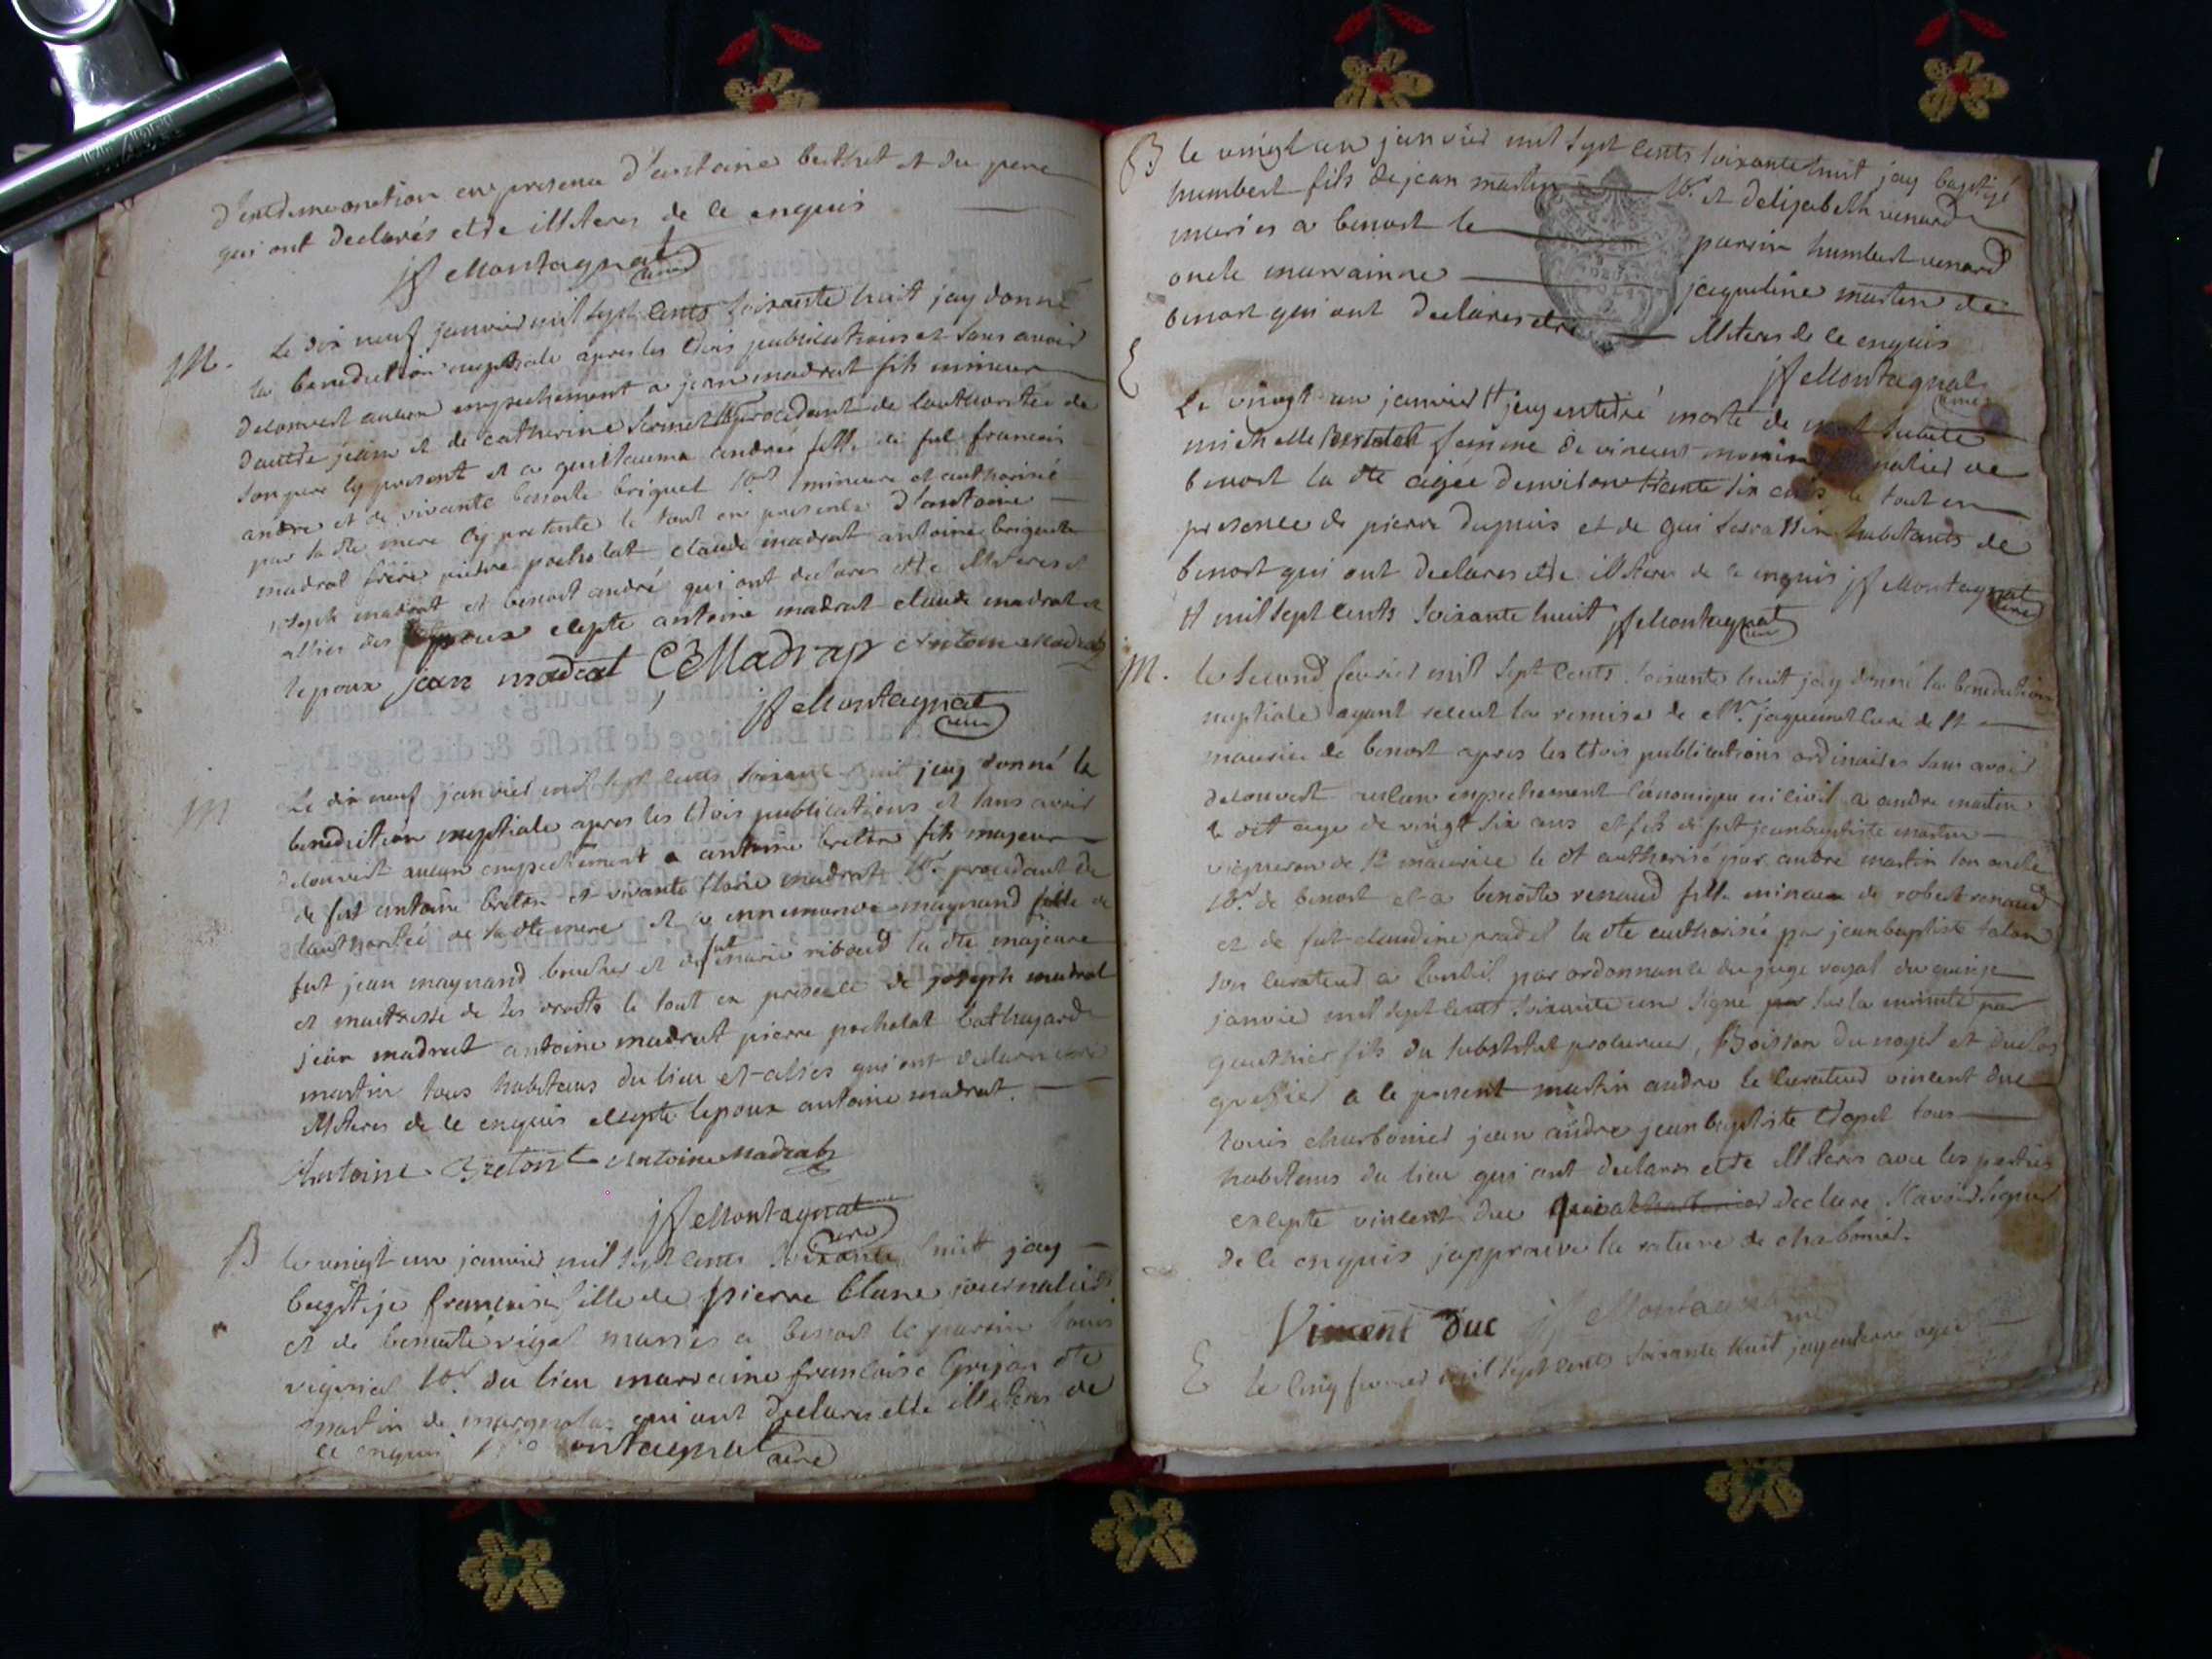 en presence d'antoine berthet et du pere
qui ont declarés etre illiteres de ce enquis
jf Montagnat curé
M. Le dix neuf janvier mil sept cents soixante huit jay donné
la benediction nuptiale apres les trois publications et sans avoir
decouvert aucun empechement a jean madrat fils mineur
d'autre jean et de catherine procedant de l'authoritée de
son pere cy present et a guillauma andré fille de fut francois
andre et de vivante benoite briquet mineure et authorisé
par la dte mere cy presente le tout en presence d'antoine
madrat frere pierre pocholat claude madrat antoine
joseph madrat et benoit andré qui ont declares etre illiteres
des epoux exepte antoine madrat claude madrat et
lepoux jean madrat C Madrap Antoine Madrat
jf Montagnat curé
M Le dix neuf janvier mil sept cents soixante huit jay donné la
benediction nuptiale apres les trois publications et sans avoir
decouvert aucun empechement a antoine breton fils majeur
de fut antoine breton et vivante madrat procedant de
lauthoritée de sa dte mere et a ennemonde maynand fille de
fut jean maynand et de fut marie riboud la dte majeure
et maitresse de ses droits le tout en presence de joseph madrat
jean madrat antoine madrat pierre pocholat
martin tous habitans du lieu et qui ont declares
illiteres de ce enquis exepte lepoux antoine madrat.
Antoine Bretont Antoine Madrat
jf Montagnat curé
B le vingt un janvier mil sept cents soixante huit jay
baptisé francoise fille de pierre blanc journalier
et de benoite mariés a benost le parain louis
du lieu marraine francoise dte
martin de qui ont declares etre illiteres de
ce enquis Montagnat curé
B le vingt un janvier mil sept cents soixante huit jay baptisé
humbert fils de jean martin et d'elizabeth renard
mariés a benost le parain humbert renard
oncle marrainne jaqueline martin de
benost qui ont declares etre illiteres de ce enquis
jf Montagnat curé
E Le vingt un janvier # jay enterré morte de mort subite
michelle femme de vincent de
benost la dte agée d'environ trente six ans le tout en
presence de pierre dupuis et de gui habitants de
benost qui ont declares etre illiteres de ce enquis jf Montagnat curé
# mil sept cents soixante huit jf Montagnat curé
M. le second fevrier mil sept cents soixante huit jay donné la benediction
nuptiale ayant receut la remise de Mr. jaquemet curé de St
maurice de benost apres les trois publications ordinaires sans avoir
decouvert aucun empechement canonique ni civil a andre martin
le dit age de vingt six ans et fils de fut jean baptiste martin
vigneron de St maurice le dt authorisé par andre martin son oncle
de benost et a benoite renaud fille mineure de robert renaud
et de fut claudine pradel la dte authorisée par jean baptiste talon
son curateur a conseil par ordonnance du juge royal du quinze
janvier mil sept cents soixante un signé par sur la minute par
gauthier fils du substitut procureur, Boisson du noyer et duclos
greffier a ce present martin andre le curateur vincent duc
louis charbonier jean andre jean baptiste tous
habitans du lieu qui ont declares etre illiteres avec les parties
exepte vincent duc qui a declare scavoir signer
de ce enquis japprouve la rature de charbonier.
Vincent Duc jf Montagnat curé
E le cinq fevrier mil sept cents soixante huit jay enterré agée